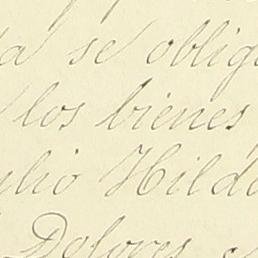 a se oblig
los bienes
ulio Hilda
Dolores